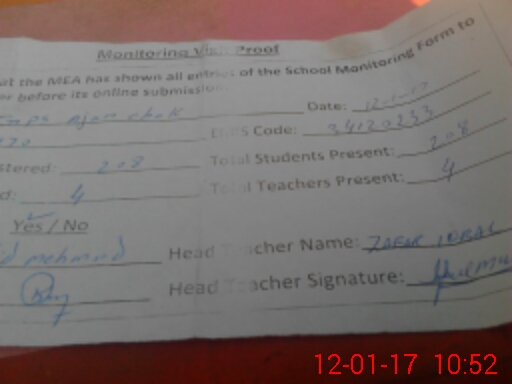 Monitoring Visit Proof
at the MEA has shown all entries of the School Monitoring Form to
er before its online submission.
Date: 12-01-17
EMIS Code: 34120233
stered: 208 Total Students Present: 208
d: 4 Total Teachers Present: 4
Yes / No
mehmud Head Teacher Name: ZAFAR IQBAL
Head Teacher Signature:
12-01-17 10:52